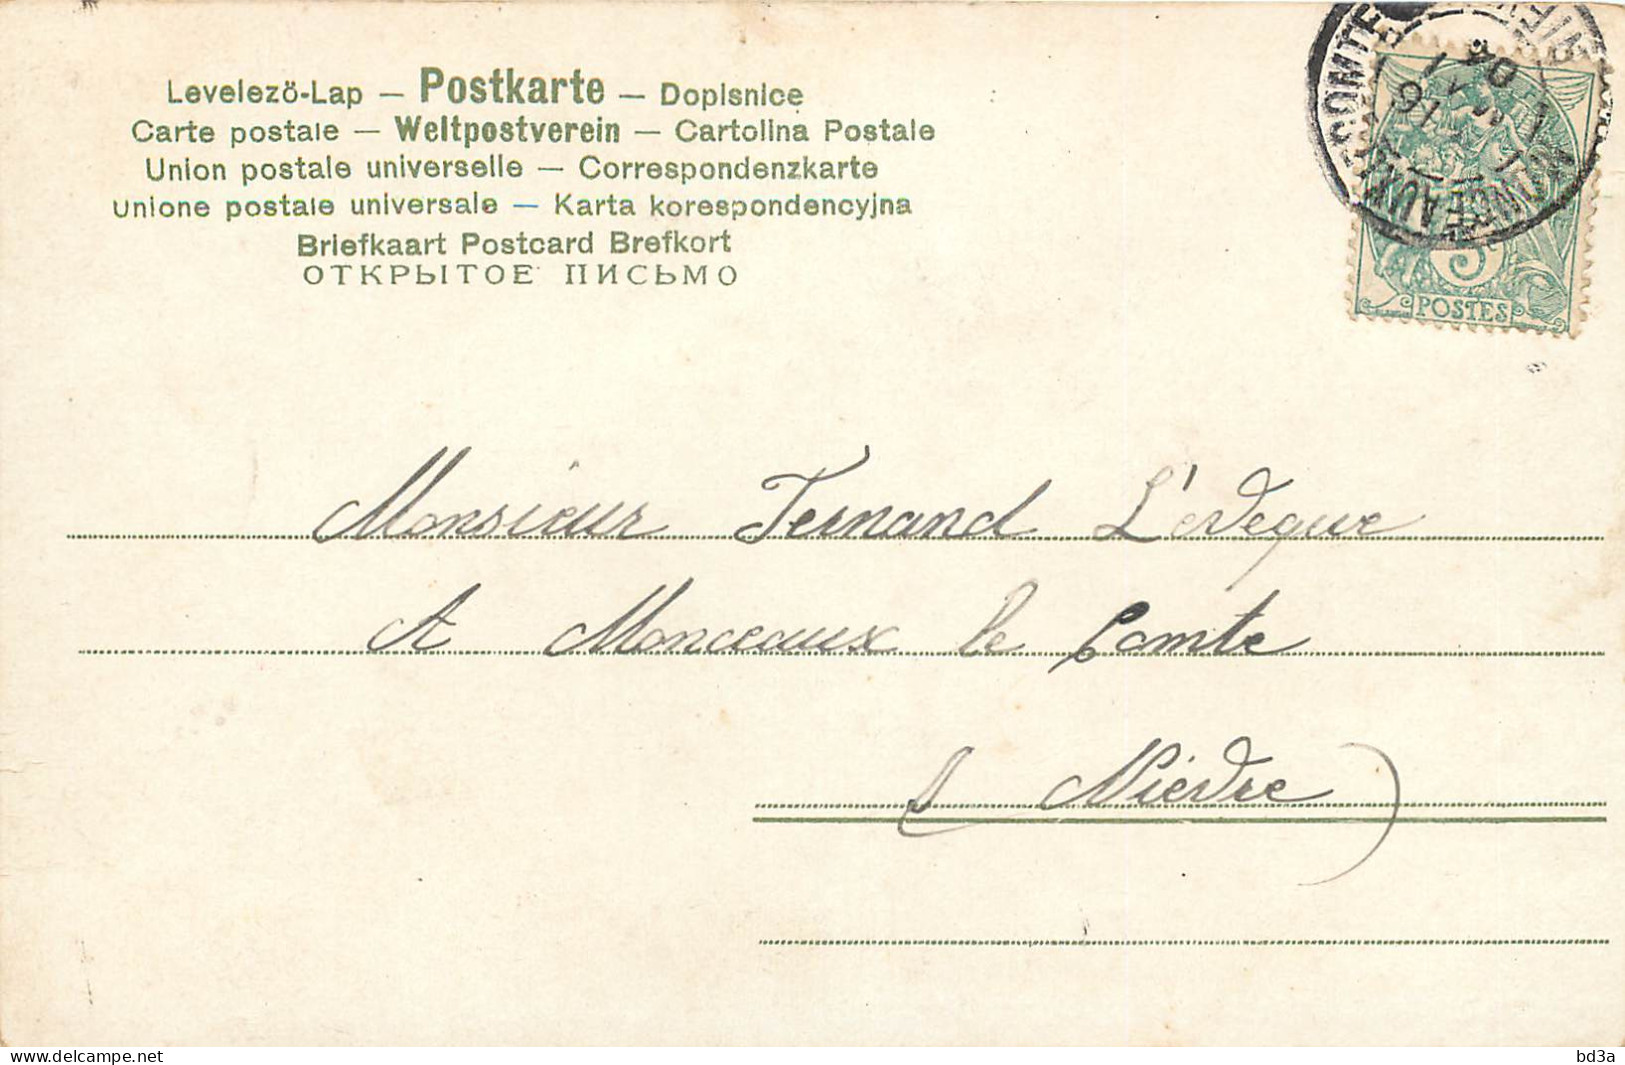 Levelezö-Lap — Postkarte — Dopisnice
Carte postale — Weltpostverein — Cartolina Postale
Union postale universelle — Correspondenzkarte
Unione postale universale — Karta korespondencyjna
Briefkaart Postcard Brefkort
ОТКРЫТОЕ ПИСЬМО
MONCEAUX LE COMTE
16
04
5c
POSTES
Monsieur Fernand L'évêque
A Monceaux le Comte
(Nièvre)
delcampe.net
bd3a